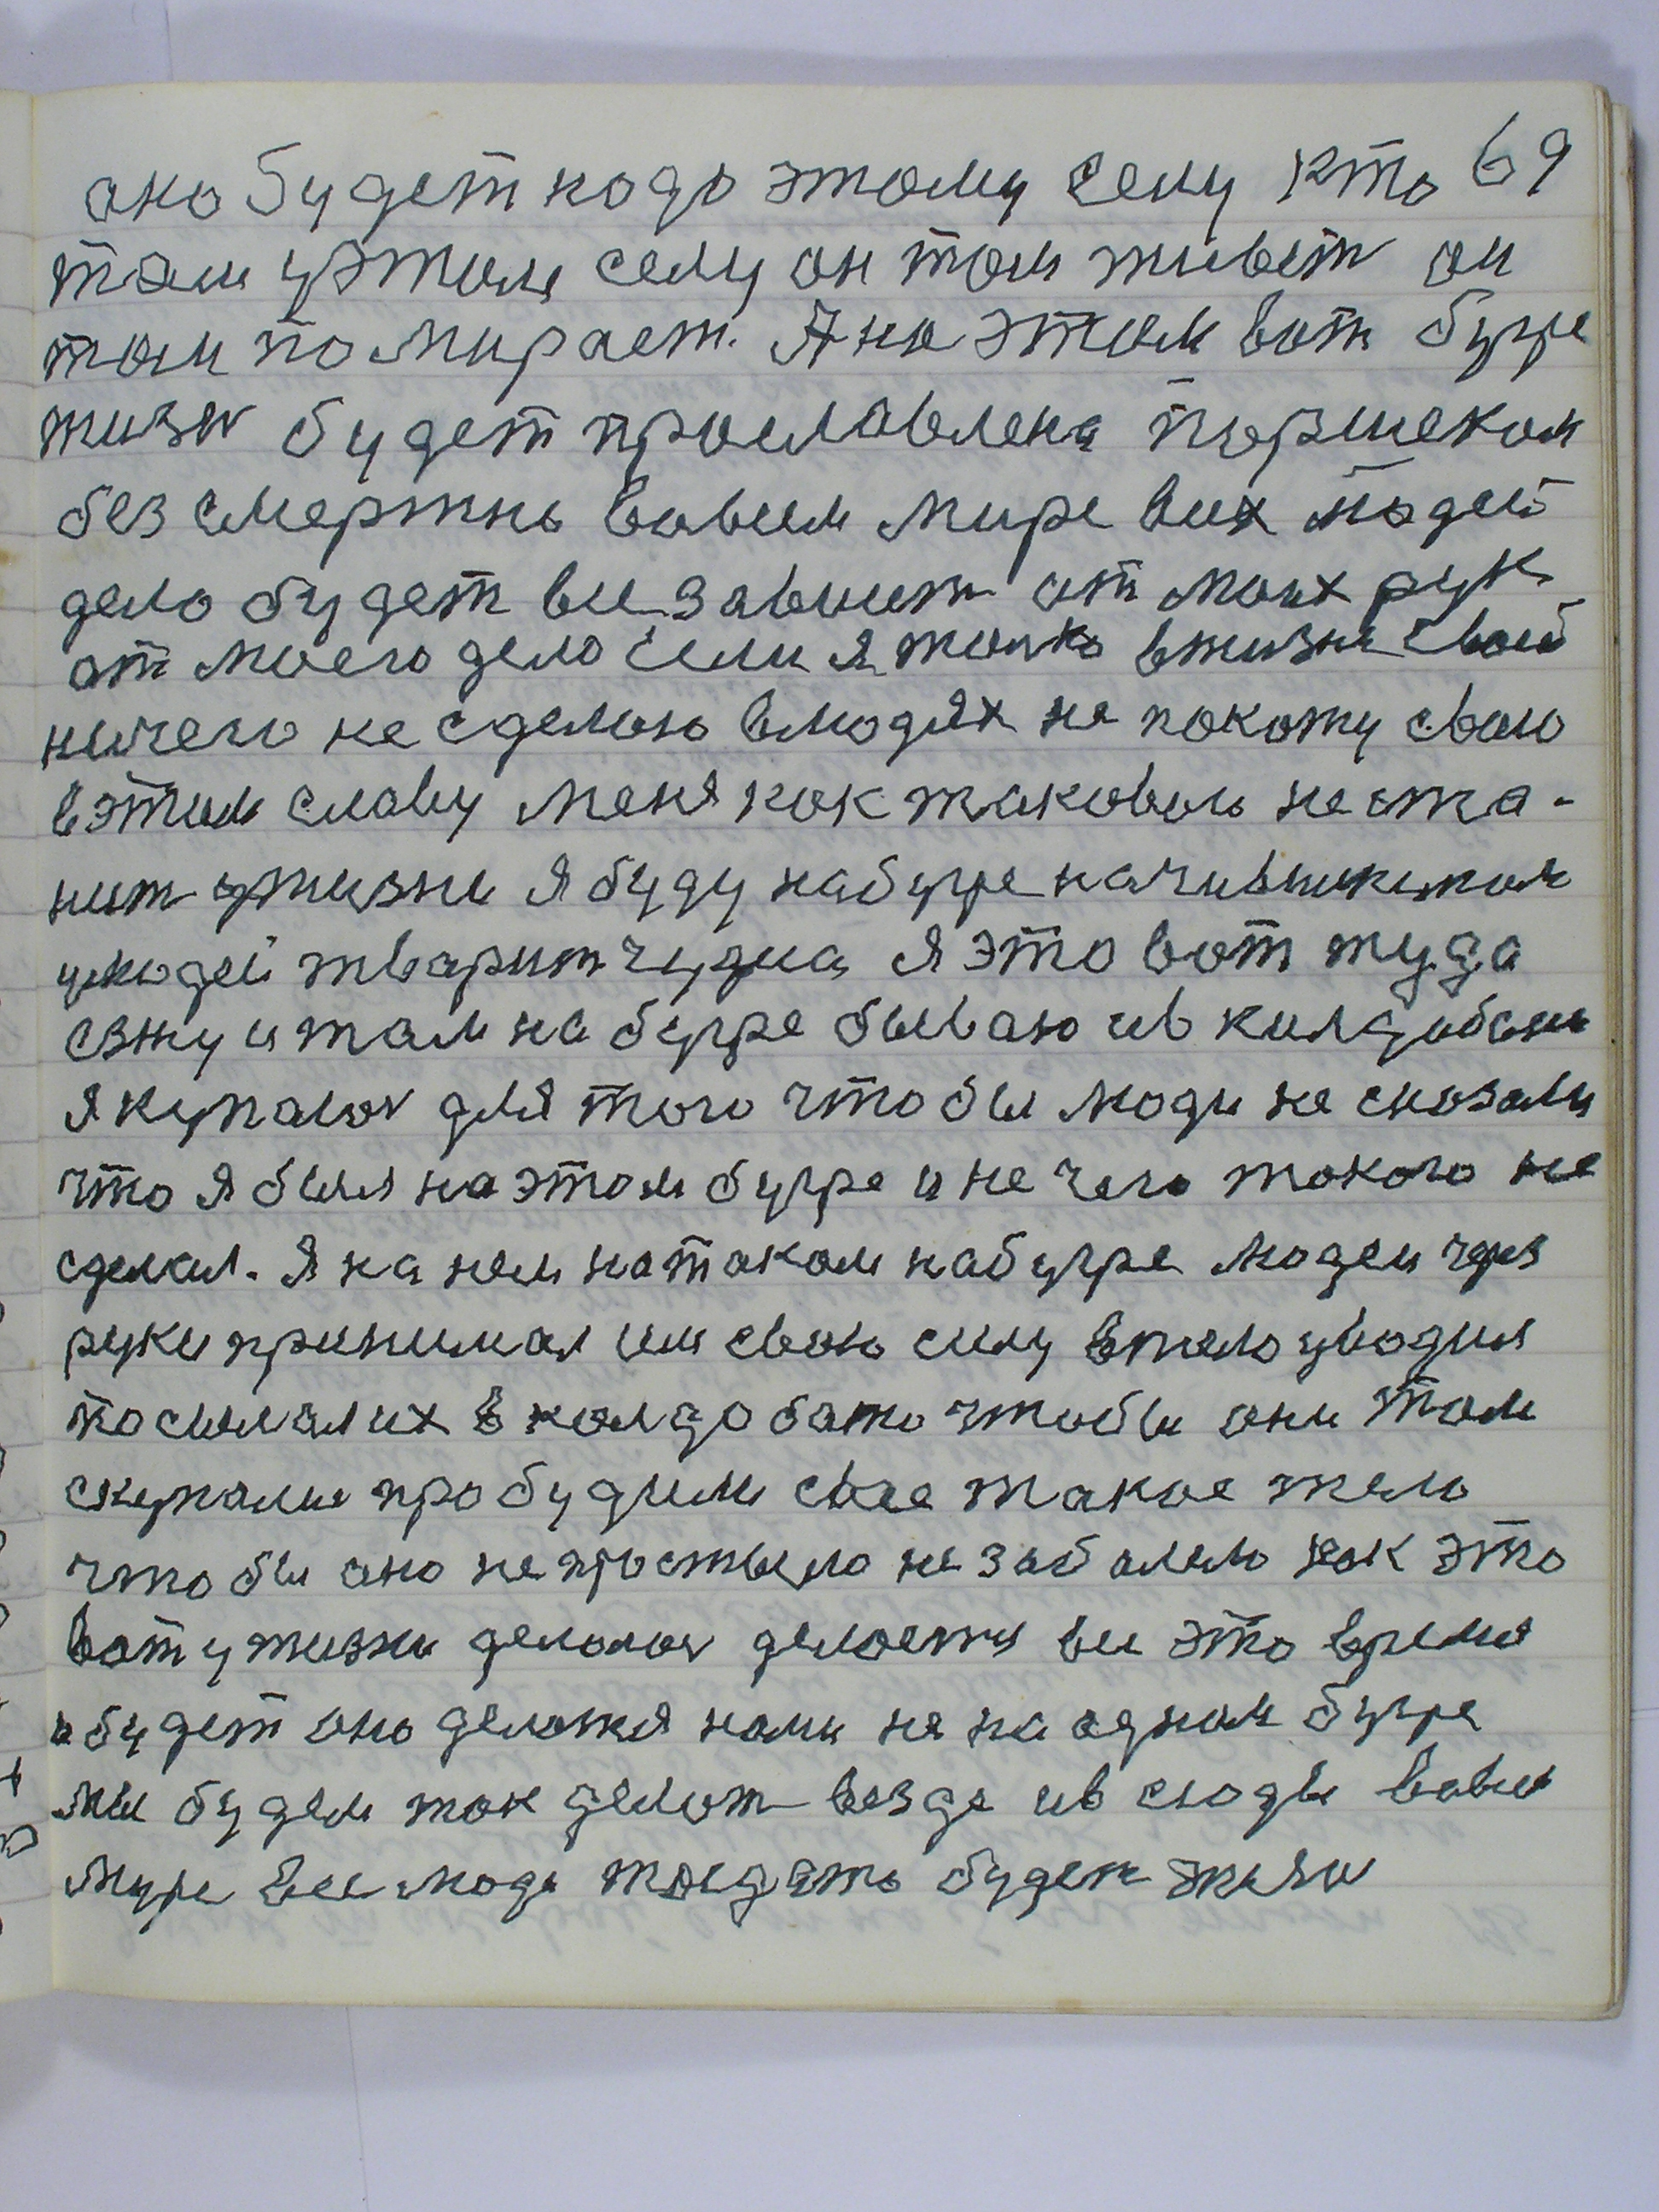 оно будет надо этому селу кто 69
там уэтом селу он там живет он
там помирает. А на этом вот бугре
жизн будет прославлена Паршеком
без смертно вовсем мире всих людей
дело будет все зависит от моих рук
от моего дело если я толко вжизне своей
ничего не сделаю влюдях не покажу свою
вэтим славу меня как таковою не ста-
нит ужизне я буду набугре
улюдей тварит чудиса я это вот туда
езжу и там на бугре бываю ив
я купалсь для того чтобы люди не сказали
что я был на этом бугре и не чего такого не
сделал. Я на нем на таком на бугре людей через
руки принимал им свою силу втело уводил
посылал их в калдобаню чтобы они там
скупалис пробудили свае такое тело
чтобы оно не простыло не заболело как это
вот ужизни делалос делается все это время
и будет оно делатся нами не на одном бугре
мы будем так делат везде ив сюды вовсем
мире все люди так будем жизн